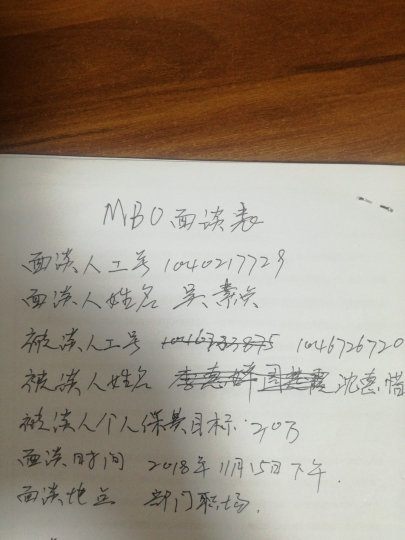 MBO面谈表
面谈人工号 1040217729
面谈人姓名 吴素
被谈人工号 1046726720
被谈人姓名 沈惠惜
被谈人个人保费目标:2.0万
面谈时间 2018年11月15日下午.
面谈地点 部门职场.